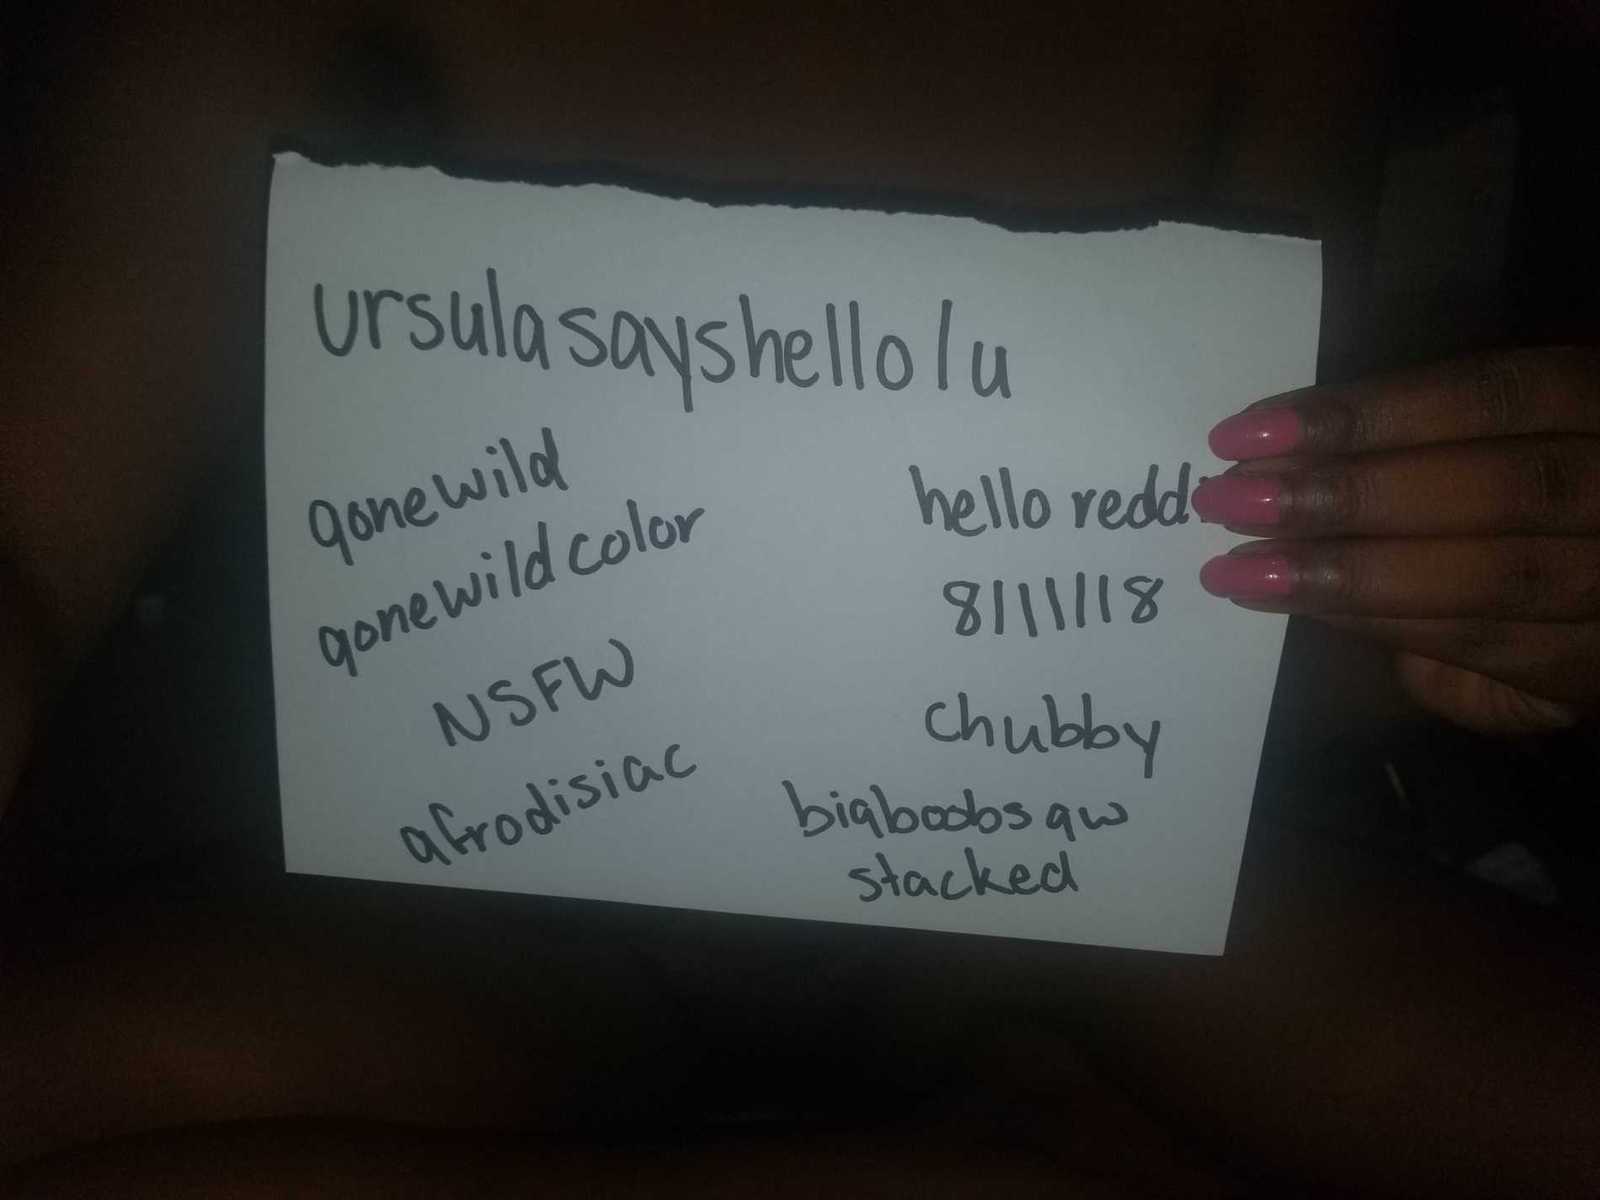 ursulasayshello/u
gonewild
gonewildcolor
NSFW
afrodisiac
hello redd
8/11/18
chubby
bigboobsgw
stacked